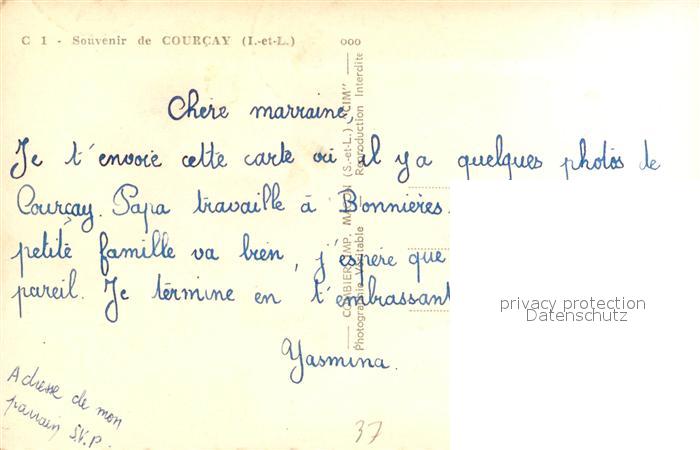 C 1 - Souvenir de COURÇAY (I.-et-L.)
ooo
Chère marraine,
Je t'envoie cette carte où il y a quelques photos de
Courçay. Papa travaille à Bonnières.
petite famille va bien, j'espère que
pareil. Je termine en t'embrassant
Yasmina.
Adresse de mon
parrain S.V.P.
37
COMBIER IMP. MACON (S.-et-L.) "CIM"
Photographie Véritable Reproduction Interdite
privacy protection
Datenschutz